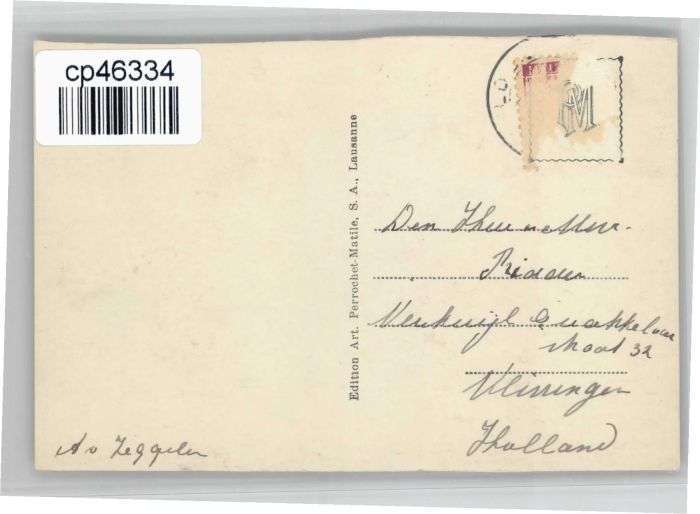 cp46334
PM
Edition Art. Perrochet-Matile, S. A., Lausanne
Den Heer en Mevr.
Ridder
Verkuijl Quakkelaar
straat 32
Vlissingen
Holland
A v Zeggelen